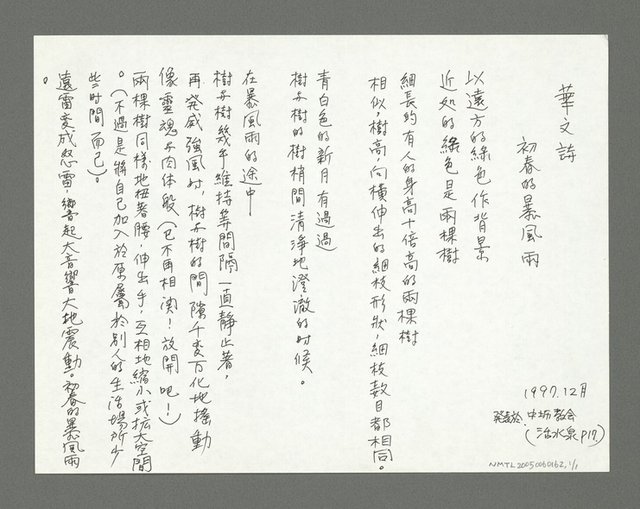 華文詩
初春的暴風雨
以遠方的綠色作背景
近処的綠色是兩棵樹
細長約有人的身高十倍高的兩棵樹
相似,樹高,向橫伸出的細枝形狀,細枝数目都相同。
青白色的新月有過過
樹与樹的樹梢間清淨地澄澈的时候。
在暴風雨的途中
樹与樹幾乎維持等間隔一直靜止著,
再発威強風时,樹与樹的間隙千变万化地搖動
像靈魂与肉体般(已不再相関!放開吧!)
兩棵樹同樣地扭著腰,伸出手,互相地縮小或拡大空間
。(不過是將自己加入於原屬於別人的生活場所少
些时間而已)。
遠雷变成怒雷,響起大音響大地震動。初春的暴風雨
。
1997.12月
発表於 中坜教会
(活水泉P17)
NMTL20050060162,1/1